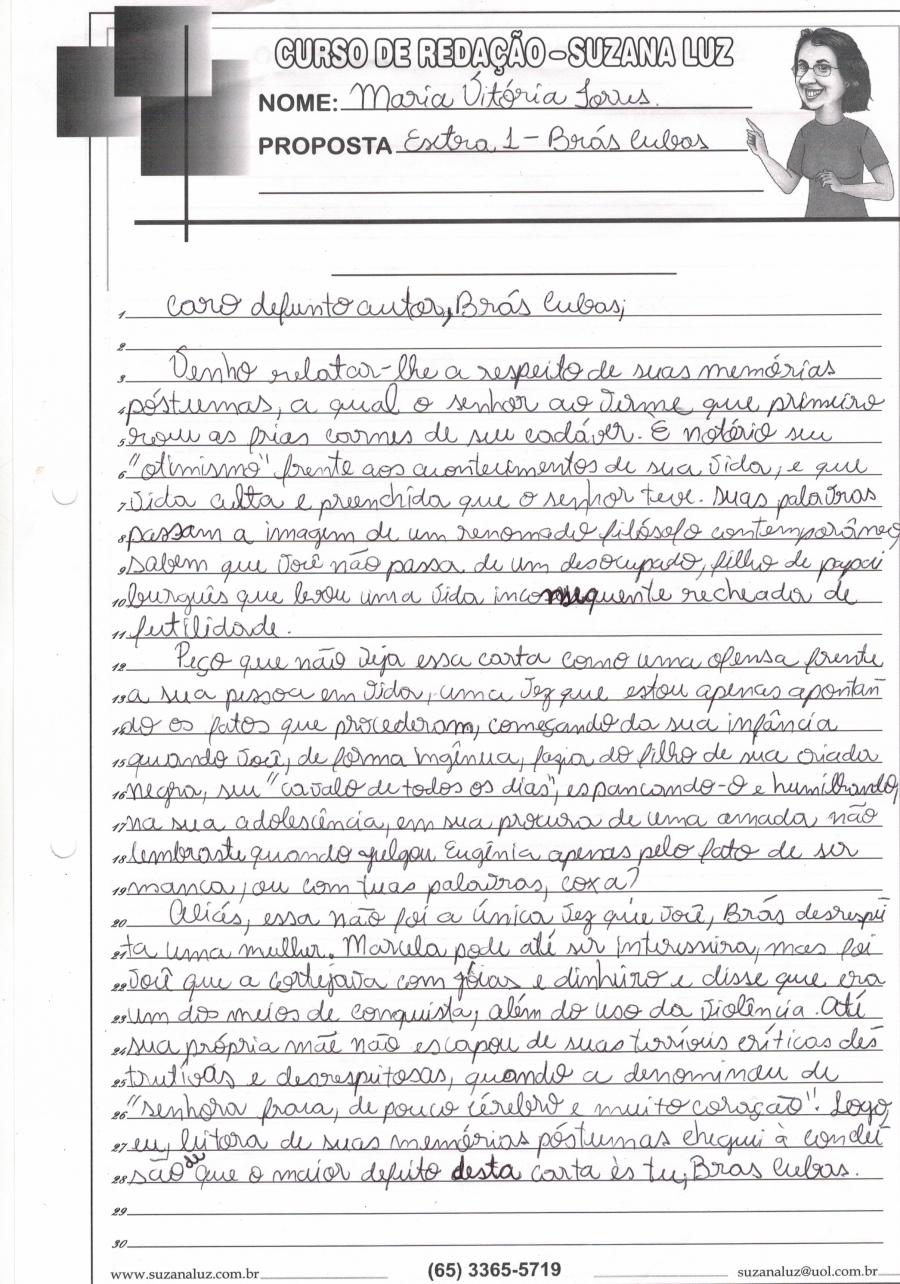 CURSO DE REDAÇÃO - SUZANA LUZ
NOME: Maria Vitória Torres.
PROPOSTA Extra 1 - Brás Cubas
1 Caro defunto autor, Brás Cubas;
2
3 Venho relatar-lhe a respeito de suas memórias
4 póstumas, a qual o senhor ao verme que primeiro
5 roeu as frias carnes de seu cadáver. É notório seu
6 "otimismo" frente aos acontecimentos de sua vida, e que
7 vida culta e preenchida que o senhor teve. Suas palavras
8 passam a imagem de um renomado filósofo contemporâneo,
9 sabem que você não passa de um desocupado, filho de papai
10 burguês que levou uma vida inconsequente recheada de
11 futilidade.
12 Peço que não veja essa carta como uma ofensa frente
13 a sua pessoa em vida, uma vez que estou apenas apontan
14 do os fatos que procederam, começando da sua infância
15 quando você, de forma ingênua, fazia do filho de sua criada
16 negra, seu "cavalo de todos os dias", espancando-o e humilhando,
17 na sua adolescência, em sua procura de uma amada não
18 lembraste quando julgou Eugênia apenas pelo fato de ser
19 manca, ou com tuas palavras, coxa?
20 Aliás, essa não foi a única vez que você, Brás desrespei
21 ta uma mulher. Marcela pode até ser interesseira, mas foi
22 você que a cortejava com jóias e dinheiro e disse que era
23 um dos meios de conquista, além do uso da violência. Até
24 sua própria mãe não escapou de suas terríveis críticas des
25 trutivas e desrespeitosas, quando a denominou de
26 "senhora fraca, de pouco cérebro e muito coração". Logo,
27 eu, leitora de suas memórias póstumas cheguei à conclu
28 são de que o maior defeito desta carta és tu, Bras Cubas.
29
30
www.suzanaluz.com.br (65) 3365-5719 suzanaluz@uol.com.br